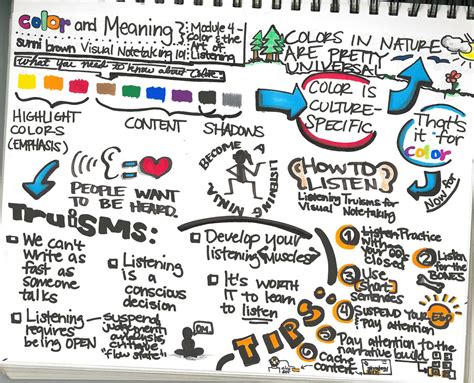 color and Meaning
sunni brown Visual Notetaking 101
Module 4-
Color & the
Art of
Listening
What you need to know about Color:
HIGHLIGHT
COLORS
(EMPHASIS)
CONTENT
SHADOWS
COLOR IS
CULTURE-
SPECIFIC
COLORS IN NATURE
ARE PRETTY
UNIVERSAL
That's
it for
color
for
Now
PEOPLE WANT
TO BE HEARD.
BECOME A
LISTENING
NINJA
HOW TO
LISTEN
Listening Truisms for
Visual Notetaking
TruiSMS:
We can't
write as
fast as
someone
talks
Listening
requires
being OPEN
Listening
is a
conscious
decision
suspend
judgment
analysis
critique
"flow state"
Develop your
listening Muscles
It's WORTH
IT to learn
to listen
OM
TIPS:
1 Listen Practice
with your
closed
2 Listen
for the
BONES
3 Use
Short
sentences
4 SUSPEND YOUR EGO
& Pay attention
5 Pay attention to the
narrative build
6 Cache
content